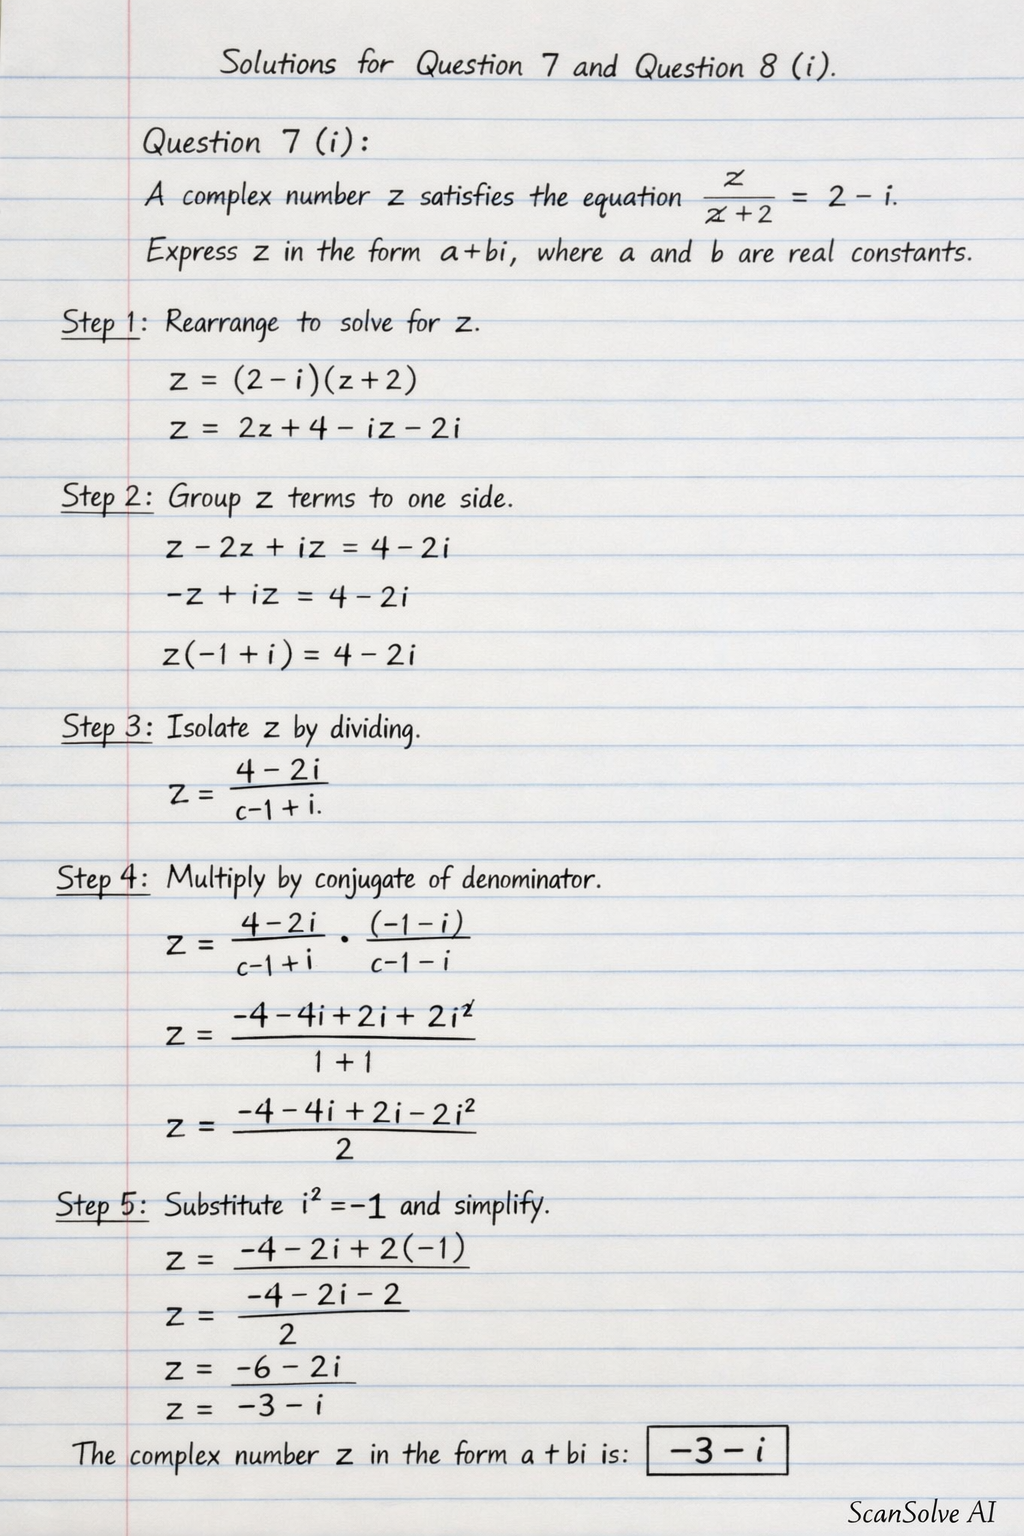 Solutions for Question 7 and Question 8 (i).
Question 7 (i):
A complex number z satisfies the equation z/(z+2) = 2 - i.
Express z in the form a+bi, where a and b are real constants.
Step 1: Rearrange to solve for z.
z = (2-i)(z+2)
z = 2z+4-iz-2i
Step 2: Group z terms to one side.
z - 2z + iz = 4-2i
-z + iz = 4-2i
z(-1+i) = 4-2i
Step 3: Isolate z by dividing.
z = 4-2i / c-1+i.
Step 4: Multiply by conjugate of denominator.
z = 4-2i / c-1+i · (-1-i) / c-1-i
z = -4-4i+2i+2i² / 1+1
z = -4-4i+2i-2i² / 2
Step 5: Substitute i² = -1 and simplify.
z = -4-2i+2(-1)
z = -4-2i-2 / 2
z = -6-2i
z = -3-i
The complex number z in the form a+bi is: -3-i
ScanSolve AI